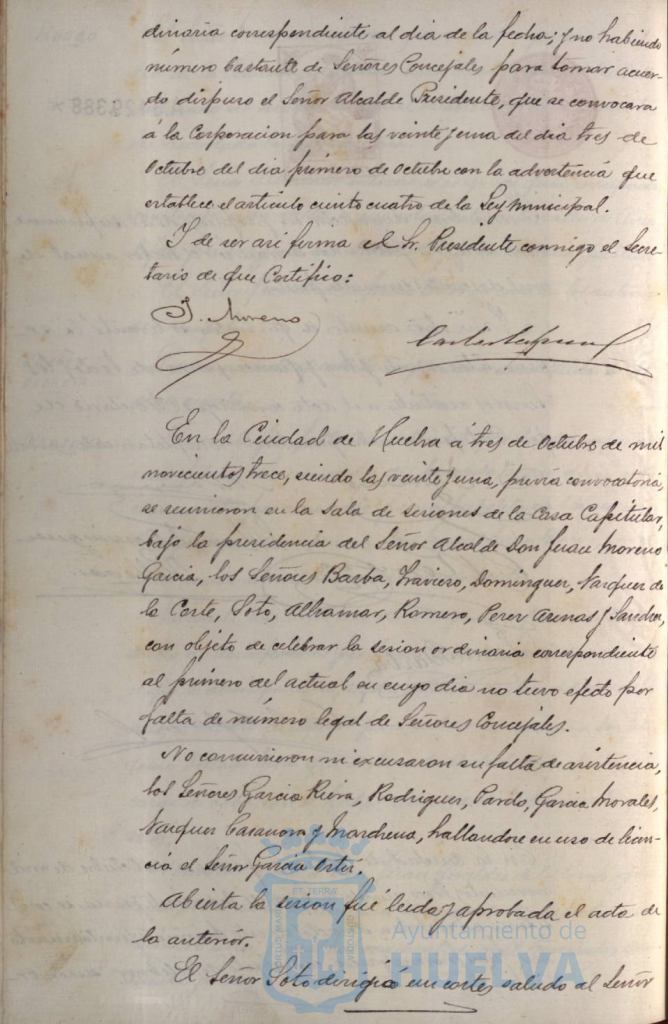 dinaria correspondiente al dia de la fecha; y no habiendo
número bastante de Señores Concejales para tomar acuer-
do dispuso el Señor Alcalde Presidente, que se convocara
á la Corporacion para las veinte y una del dia tres de
Octubre del dia primero de Octubre con la advertencia que
establece el artículo ciento cuatro de la Ley Municipal.
Y de ser asi firma el Sr. Presidente conmigo el Secre-
tario de que Certifico:
J. Moreno
En la Ciudad de Huelva á tres de Octubre de mil
novecientos trece, siendo las veinte y una, previa convocatoria,
se reunieron en la Sala de sesiones de la Casa Capitular,
bajo la presidencia del Señor Alcalde Don Juan Moreno
Garcia, los Señores Barba, Traviero, Dominguez, Vazquez de
la Corte, Soto, Alhamar, Romero, Perez Arenas y Sandez,
con objeto de celebrar la sesion ordinaria correspondiente
al primero del actual en cuyo dia no tuvo efecto por
falta de número legal de Señores Concejales.
No concurrieron ni excusaron su falta de asistencia,
los Señores Garcia Riera, Rodriguez, Pardo, Garcia Morales,
Vazquez Casanova y Marchena, hallandose en uso de licen-
cia el Señor Garcia Ortiz.
Abierta la sesion fué leida y aprobada el acta de
la anterior.
Ayuntamiento de
HUELVA
El Señor Soto dirigió un cortes saludo al Señor